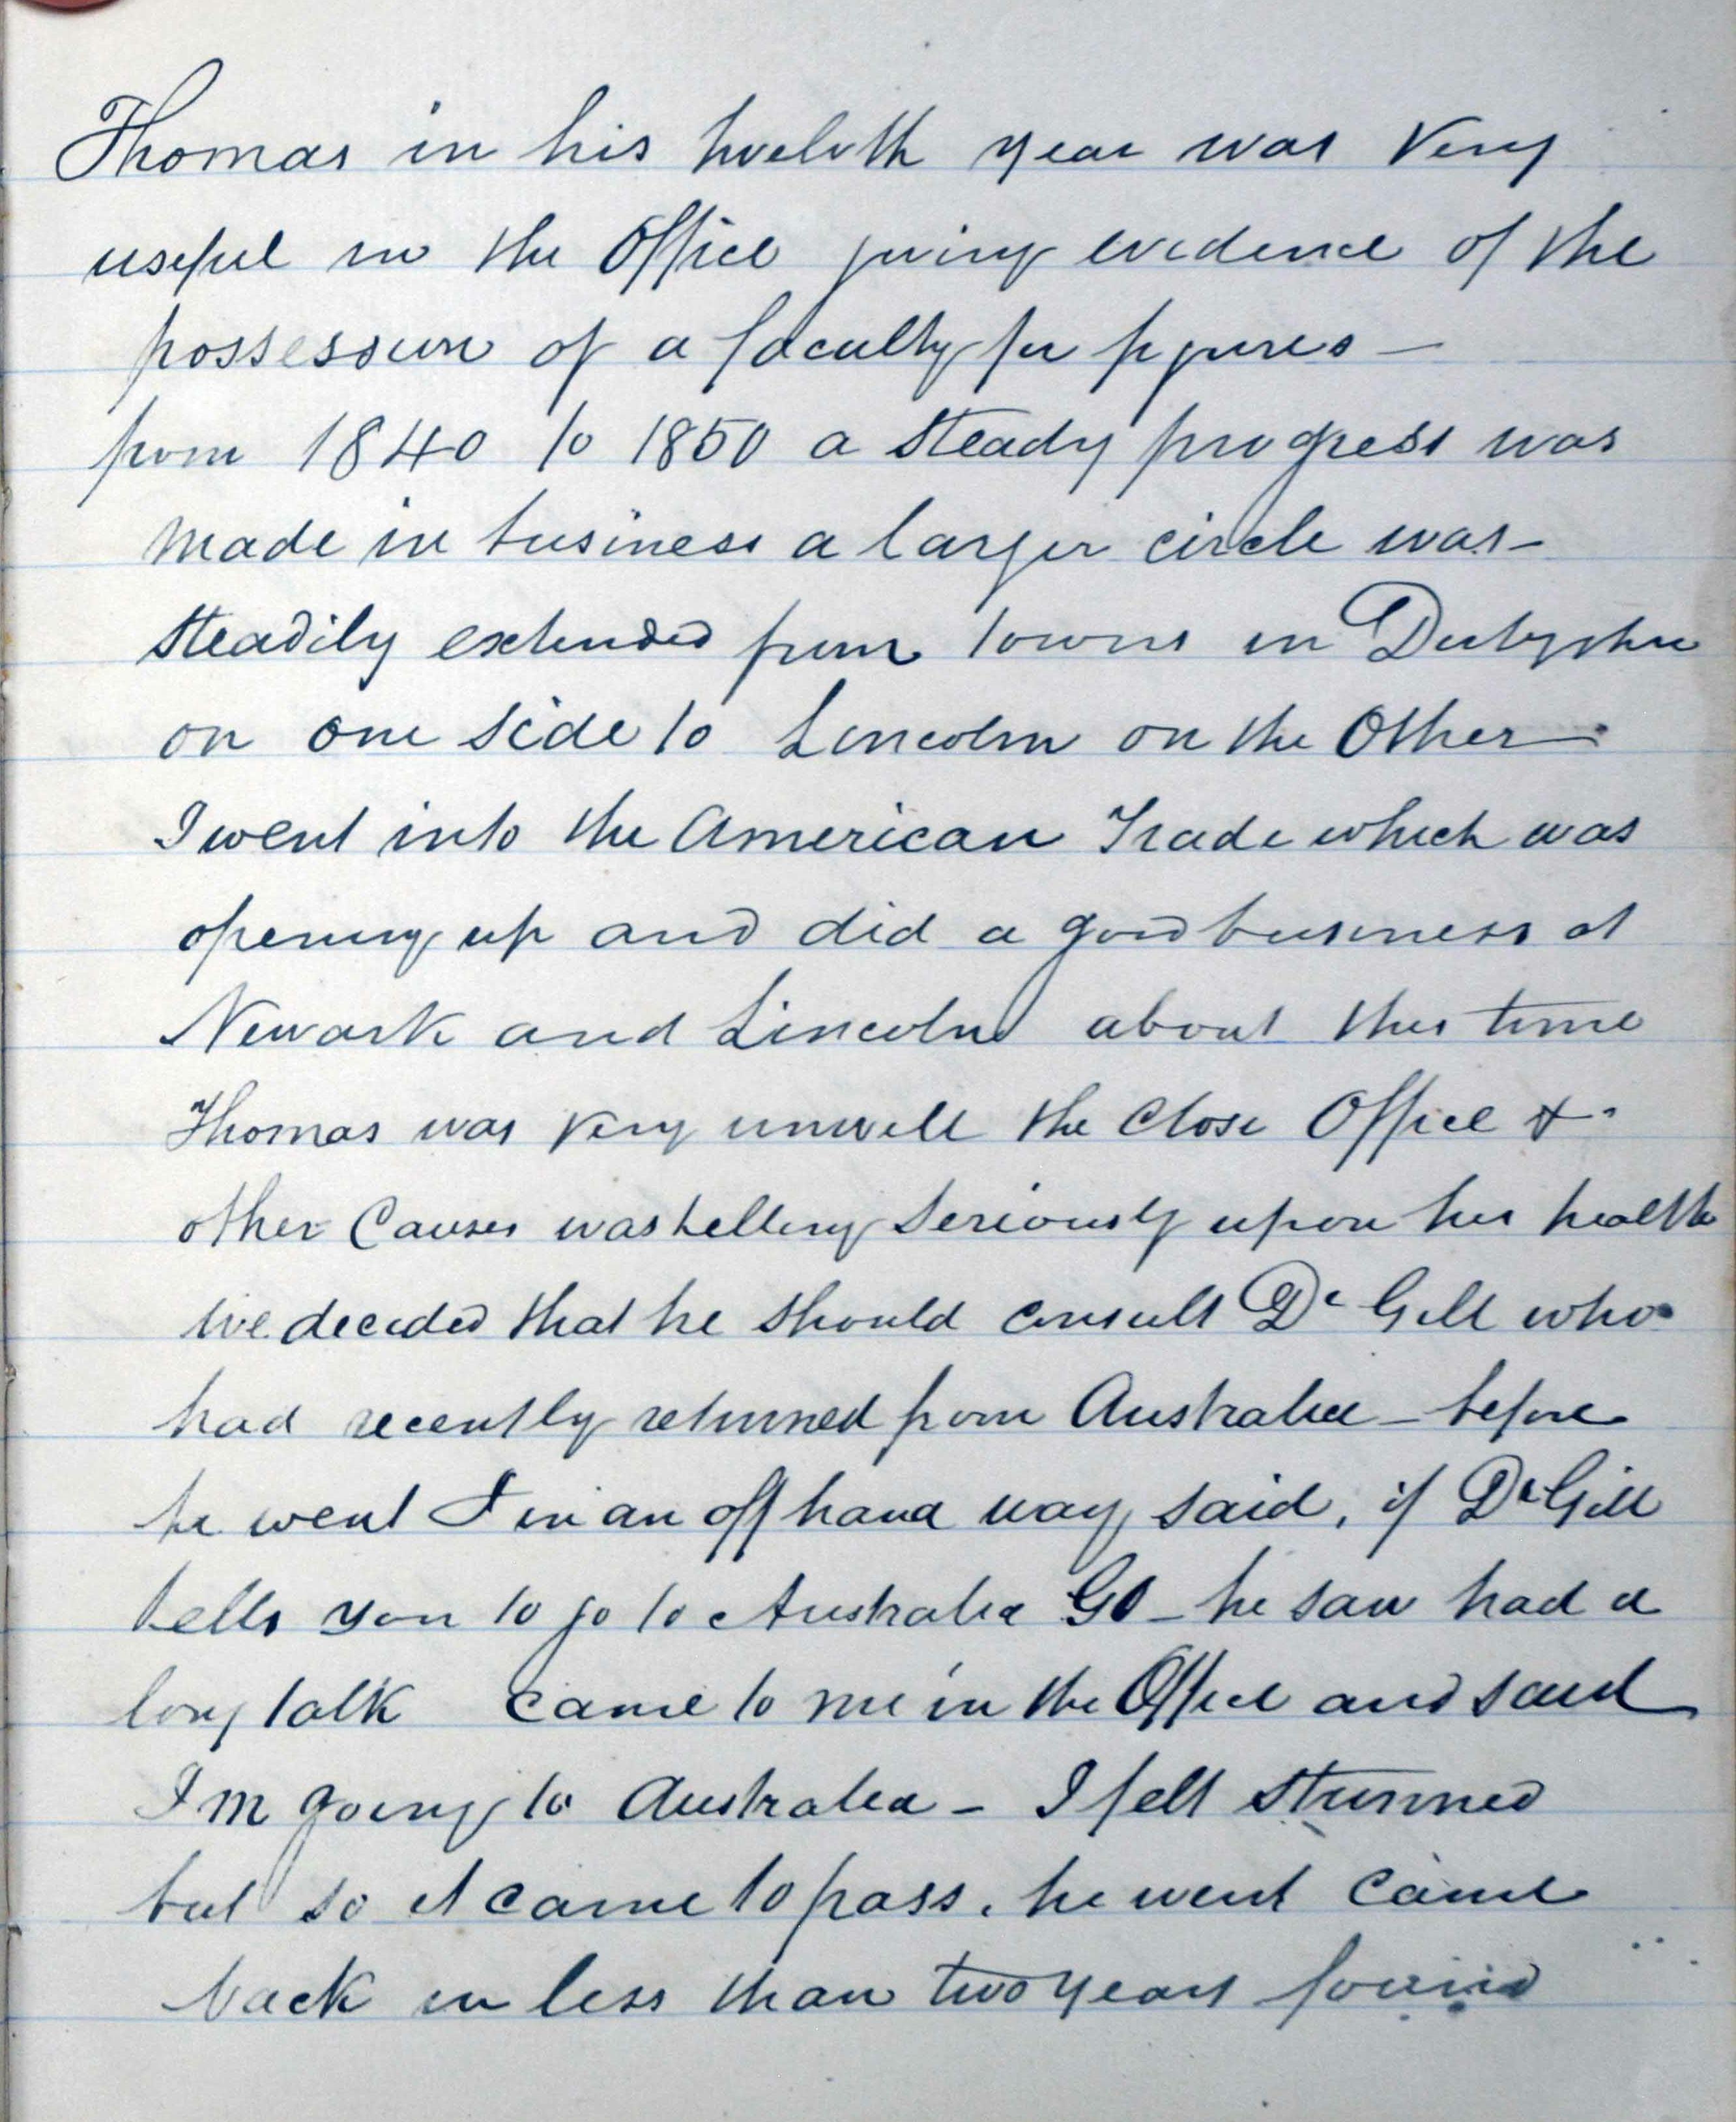 Thomas in his twelvth year was Very
useful in the Office giving evidence of the
possession of a faculty for figures —
from 1840 to 1850 a steady progress was
made in business a larger circle was —
steadily extended from towns in Derbyshire
on one side to Lincoln on the Other —
I went into the American Trade which was
opening up and did a good business at
Newark and Lincoln about this time
Thomas was very unwell the Close Office &
other Causes was telling seriously upon his health
we decided that he should consult Dr Gill who
had recently returned from Australia — before
he went I in an off hand way said, if Dr Gill
tells you to go to Australia GO — he saw had a
long talk came to me in the Office and said
I'm going to Australia — I felt stunned
but so it came to pass. he went came
back in less than two years found